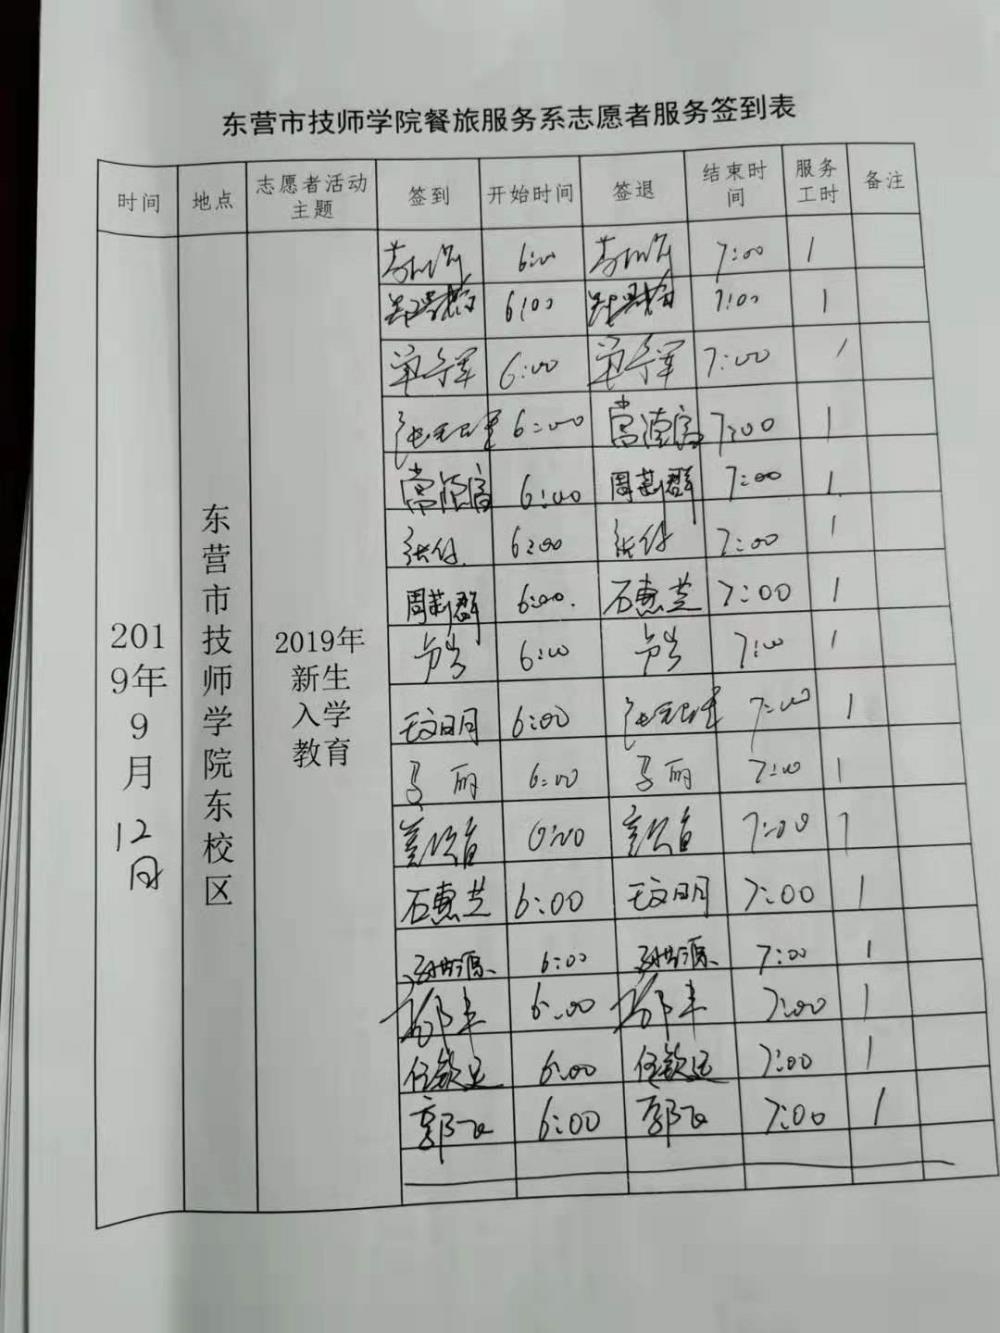 东营市技师学院餐旅服务系志愿者服务签到表
时间 地点 志愿者活动主题 签到 开始时间 签退 结束时间 服务工时 备注
2019年9月12日
东营市技师学院东校区
2019年新生入学教育
6:00 7:00 1
6:00 7:00 1
单守军 6:00 单守军 7:00 1
6:00 常德富 7:00 1
常德富 6:00 周莉群 7:00 1
张伟 6:00 张伟 7:00 1
周莉群 6:00 石惠芝 7:00 1
6:00 7:00 1
王文明 6:00 7:00 1
马丽 6:00 马丽 7:00 1
6:00 7:00 1
石惠芝 6:00 王文明 7:00 1
6:00 7:00 1
6:00 7:00 1
任钦运 6:00 任钦运 7:00 1
郭飞 6:00 郭飞 7:00 1